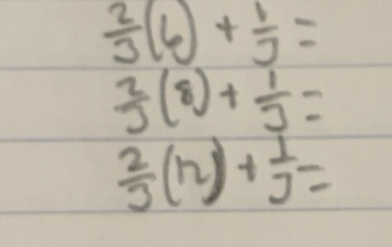 2/3(6) + 1/3 =
2/3(8) + 1/3 =
2/3(12) + 1/3 =